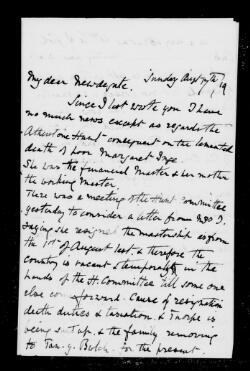 My dear Newdegate, Sunday Aug 17th/19
Since I last wrote you I have
no much news except as regards the
Atherstone Hunt consequent on the lamented
death of poor Margaret Inge
She was the financial Master & her mother
the working Master.
There was a meeting of the Hunt Committee
yesterday to consider a letter from Mrs I.
saying she resigned the mastership as from
the 1st of August last, & therefore the
Country is vacant & temporarily in the
hands of the H. Committee till some one
else forward. Cause of resignation
death duties & taxation, & Thorpe is
being shut up, & the family removing
to Tan-y-Bwlch for the present.